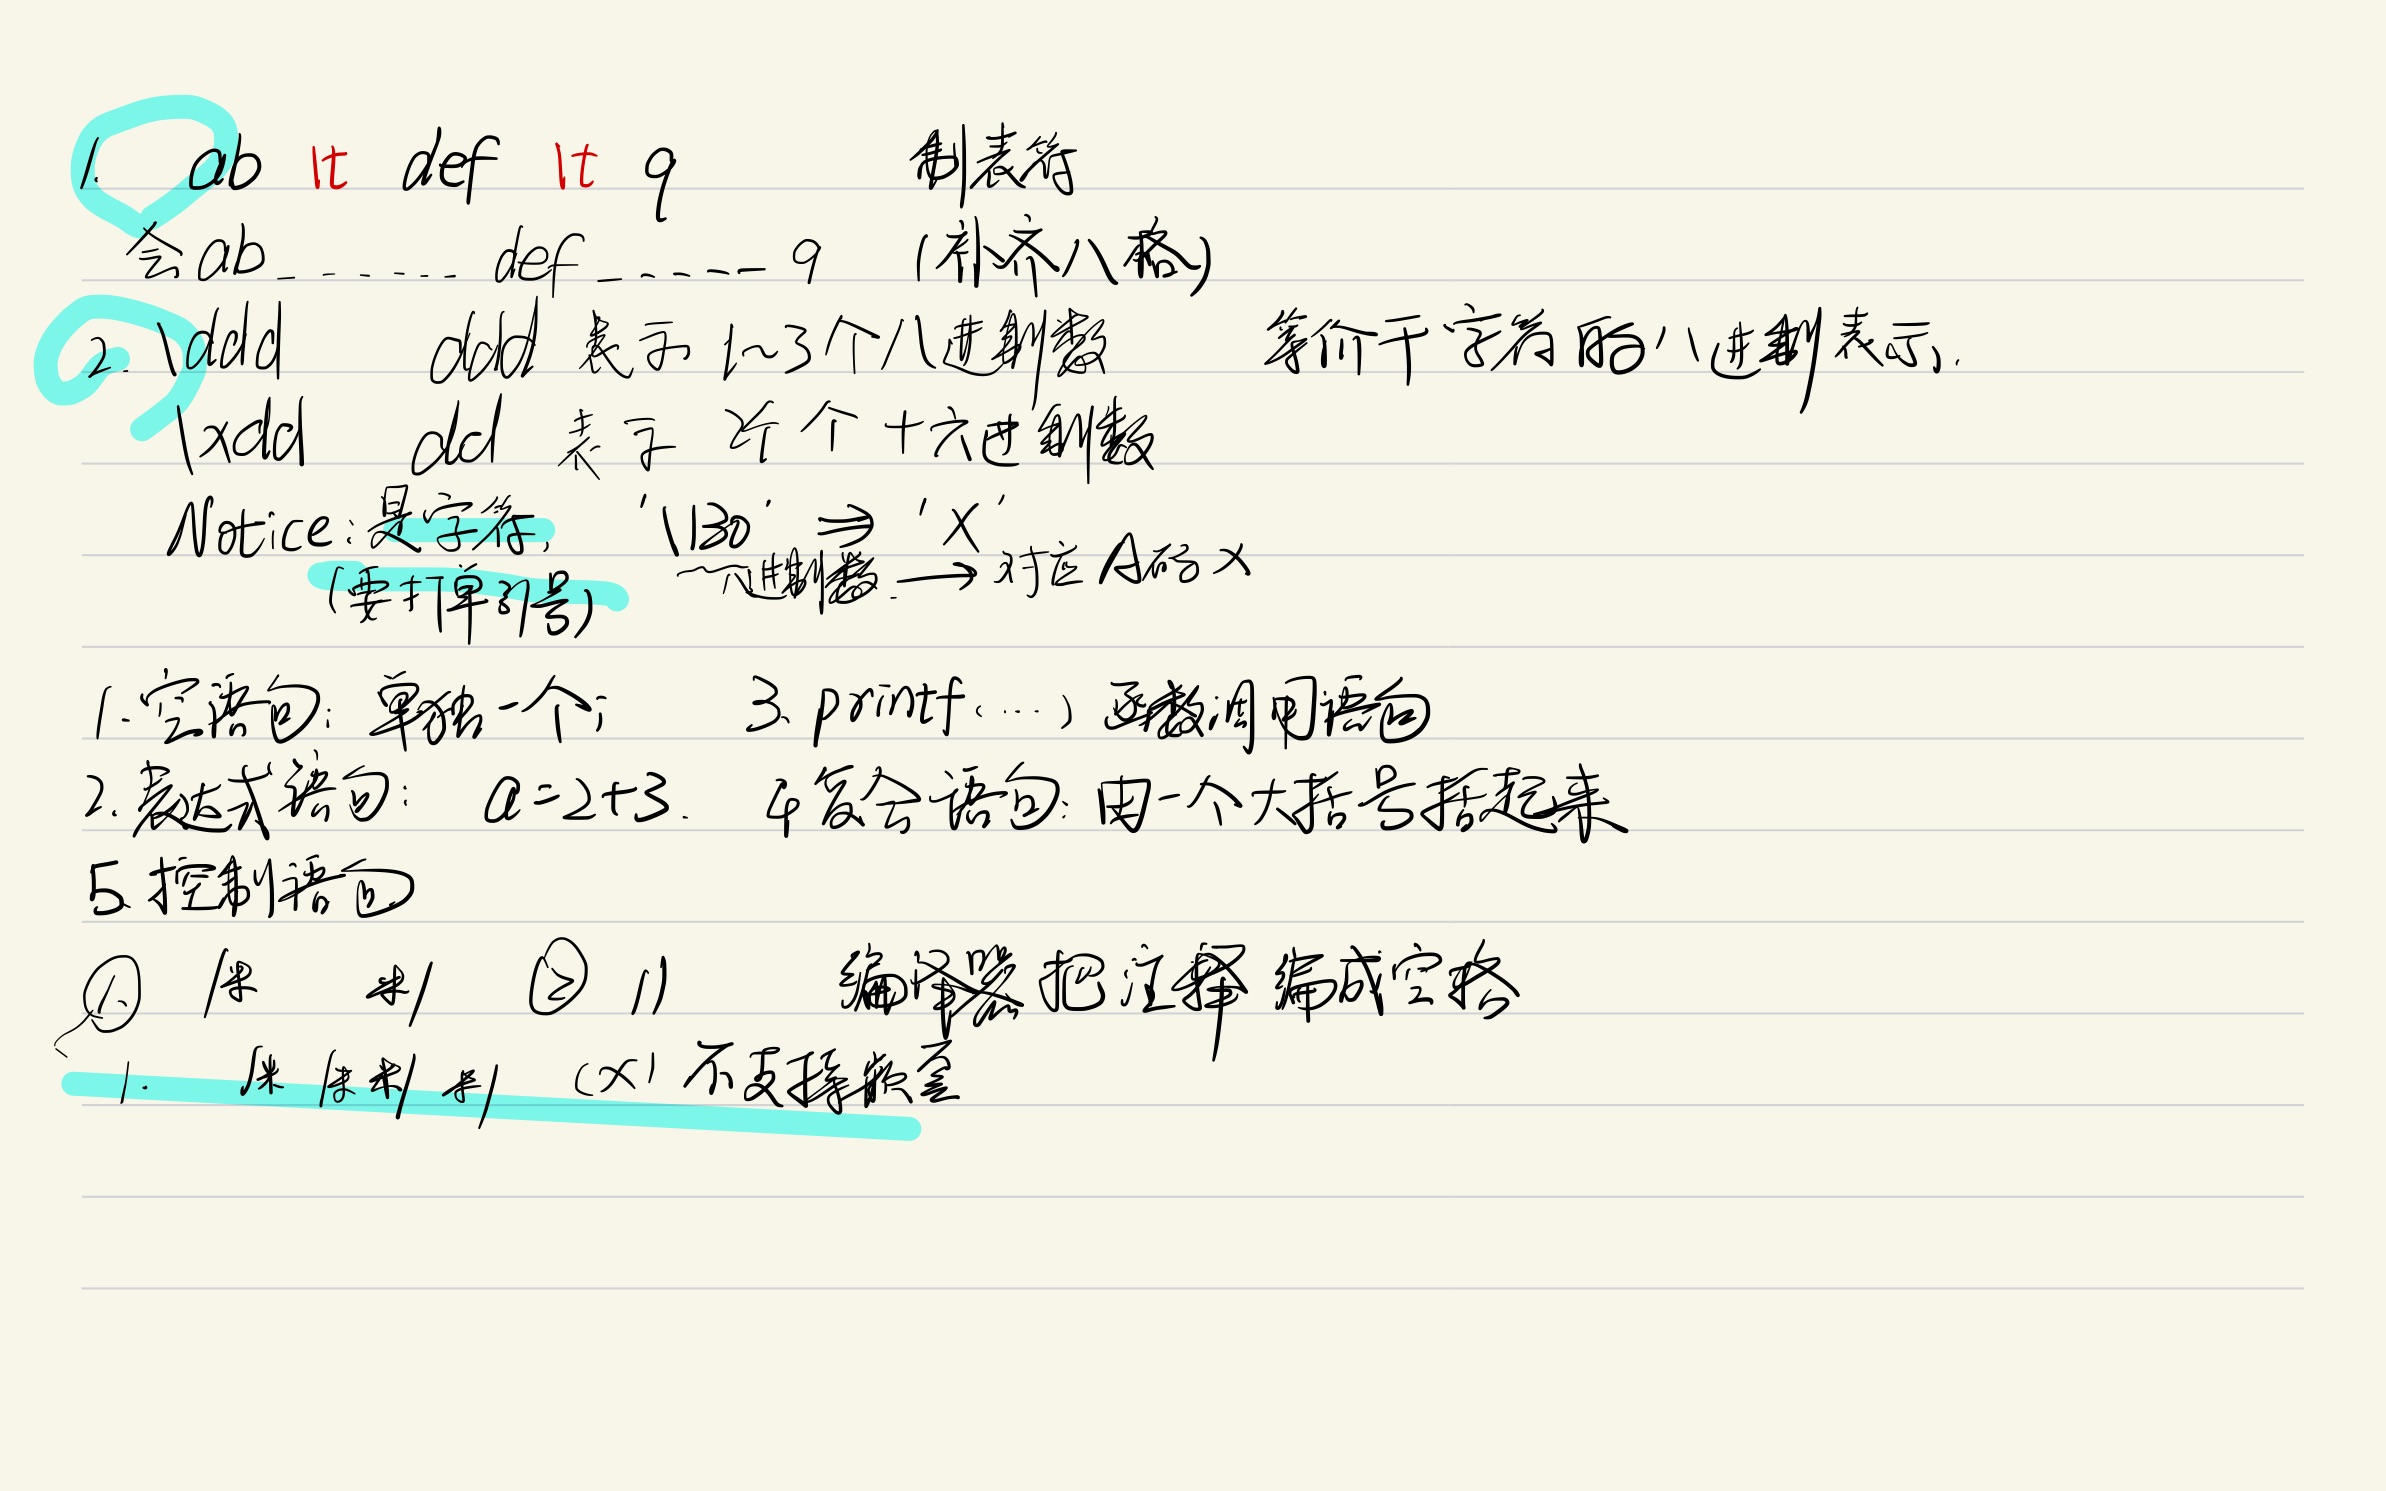 1. ab \t def \t q 制表符
会ab_ _ _ _ _ _ def_ _ _ _ _ q (补齐八格)
2. \ddd ddd 表示 1~3个八进制数 等价于字符的八进制表示.
\xdd dd 表示 2个 十六进制数
Notice: 是字符, '\130' ⇒ 'X'
(要打单引号) 八进制数. → 对应A码X
1. 空语句: 单独一个; 3. printf(....) 函数调用语句
2. 表达式语句: a=2+3. 4 复合语句: 由一个大括号括起来
5. 控制语句
① /* */ ② // 编译器把注释编成空格
1. /* /* */ */ (×) 不支持嵌套